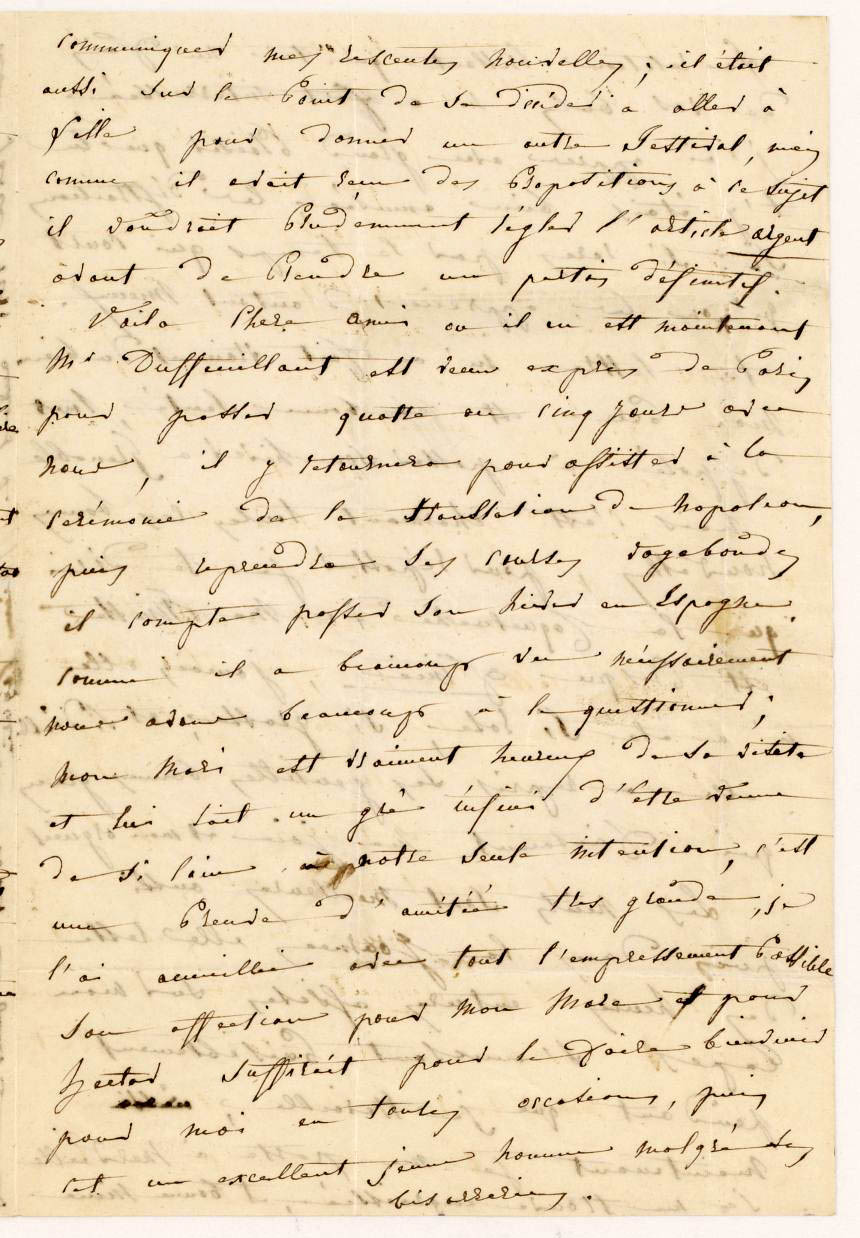 communiquer mes rescentes nouvelles ; il était
aussi sur le Point de se décider à aller à
Lille pour donner un autre Festival, mais
comme il avait reçu des Propositions à ce sujet
il voudrait Prudemment régler l'article argent
avant de Prendre un partis définitif.
Voila Chere amie ou il en est maintenant
Mr Duffeuillant est venu exprès de Paris
pour passer quatre ou cinq jours avec
nous, il y retournera pour assister à la
cérémonie de la translation de napoleon,
puis reprendra ses courses vagabondes
il compte passer son hiver en Espagne,
comme il a beaucoup vu néssairement
nous avons beaucoup à le questionner ;
mon mari est vraiment heureux de sa visite
et lui sait un gré infini d'etre venu
de si loin à notre seule intention, c'est
une Preuve d'amitié tres grande, je
l'ai accueillie avec tout l'empressement Possible
Son affection pour mon Mare et pour
hector suffirait pour le Faire bienvenir
pour moi en toutes occasions, puis
cet un excellent jeune homme malgré ses
bisarreries.